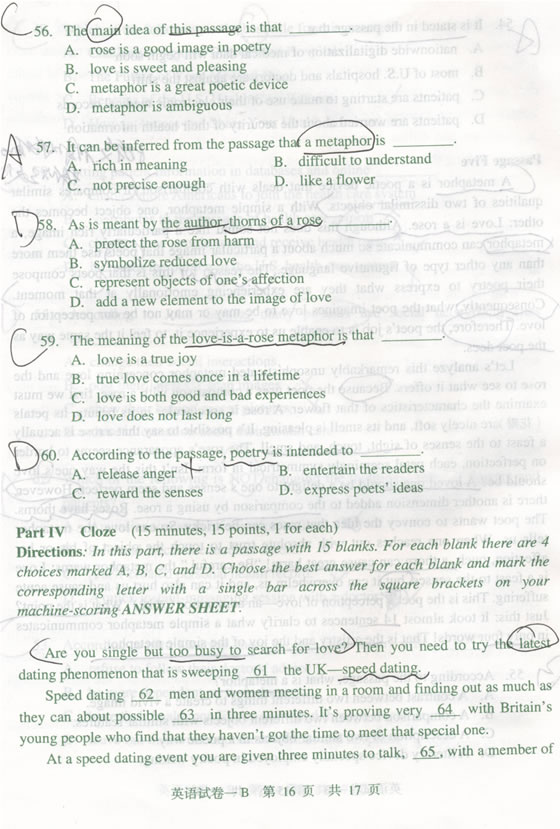 C 56. The main idea of this passage is that ________.
A. rose is a good image in poetry
B. love is sweet and pleasing
C. metaphor is a great poetic device
D. metaphor is ambiguous
A 57. It can be inferred from the passage that a metaphor is ________.
A. rich in meaning B. difficult to understand
C. not precise enough D. like a flower
D 58. As is meant by the author, thorns of a rose ________.
A. protect the rose from harm
B. symbolize reduced love
C. represent objects of one's affection
D. add a new element to the image of love
C 59. The meaning of the love-is-a-rose metaphor is that ________.
A. love is a true joy
B. true love comes once in a lifetime
C. love is both good and bad experiences
D. love does not last long
D 60. According to the passage, poetry is intended to ________.
A. release anger B. entertain the readers
C. reward the senses D. express poets' ideas
Part IV Cloze (15 minutes, 15 points, 1 for each)
Directions: In this part, there is a passage with 15 blanks. For each blank there are 4
choices marked A, B, C, and D. Choose the best answer for each blank and mark the
corresponding letter with a single bar across the square brackets on your
machine-scoring ANSWER SHEET.
Are you single but too busy to search for love? Then you need to try the latest
dating phenomenon that is sweeping 61 the UK—speed dating.
Speed dating 62 men and women meeting in a room and finding out as much as
they can about possible 63 in three minutes. It's proving very 64 with Britain's
young people who find that they haven't got the time to meet that special one.
At a speed dating event you are given three minutes to talk, 65, with a member of
英语试卷—B 第 16 页 共 17 页